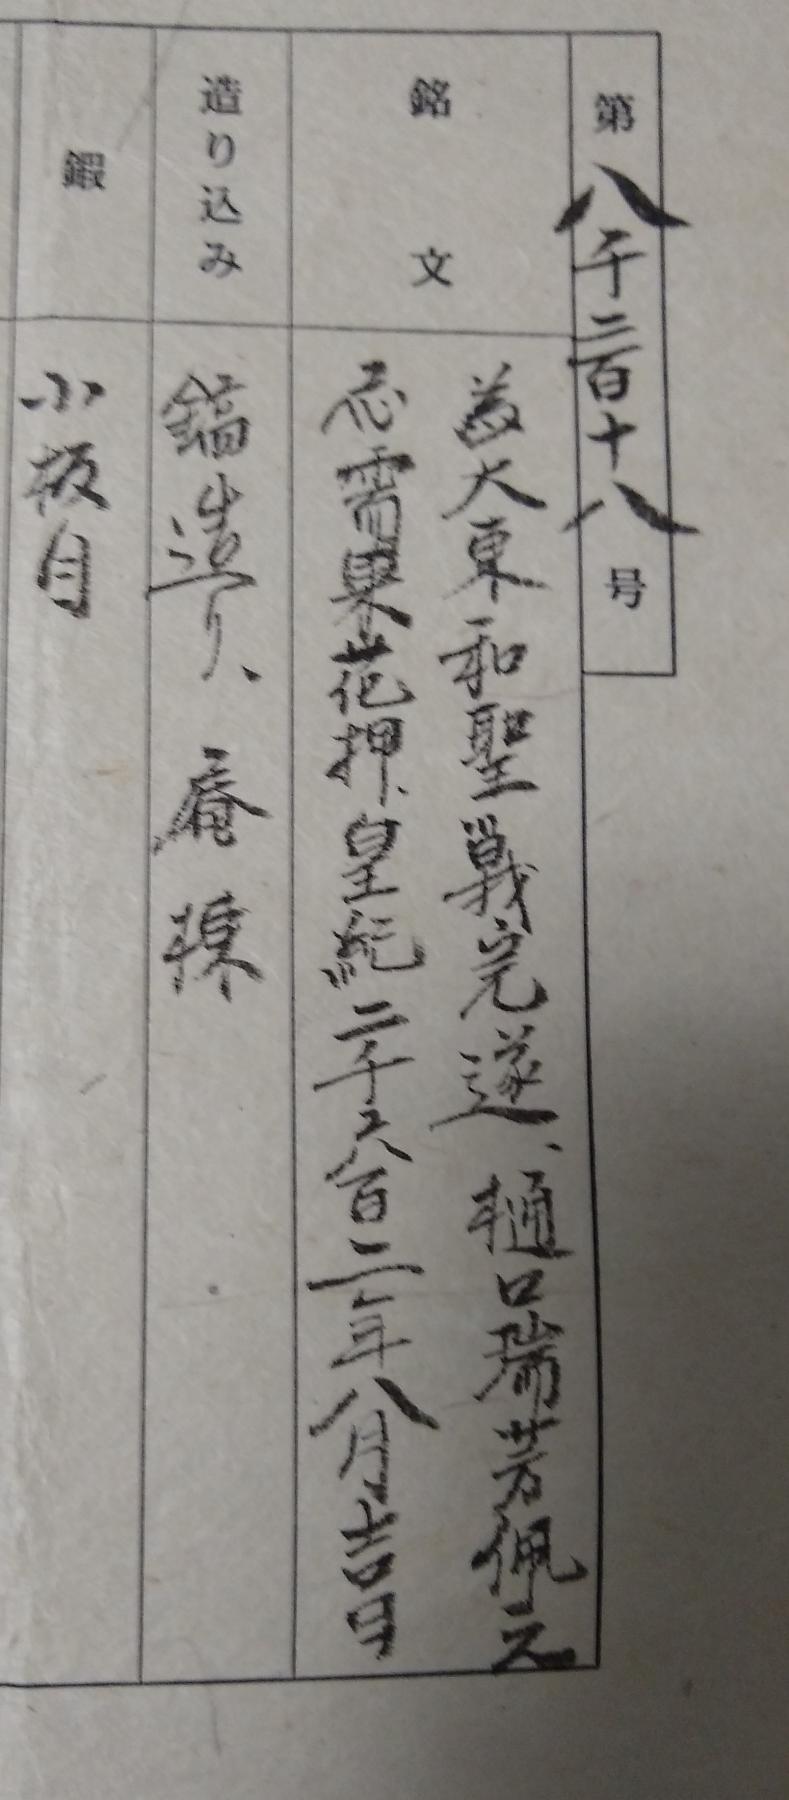 第八千二百十八号
銘文
為大東和聖戦完遂、樋口瑞芳佩之
応需果花押、皇紀二千六百二年八月吉日
造り込み
鎬造り、庵棟
鍜
小板目